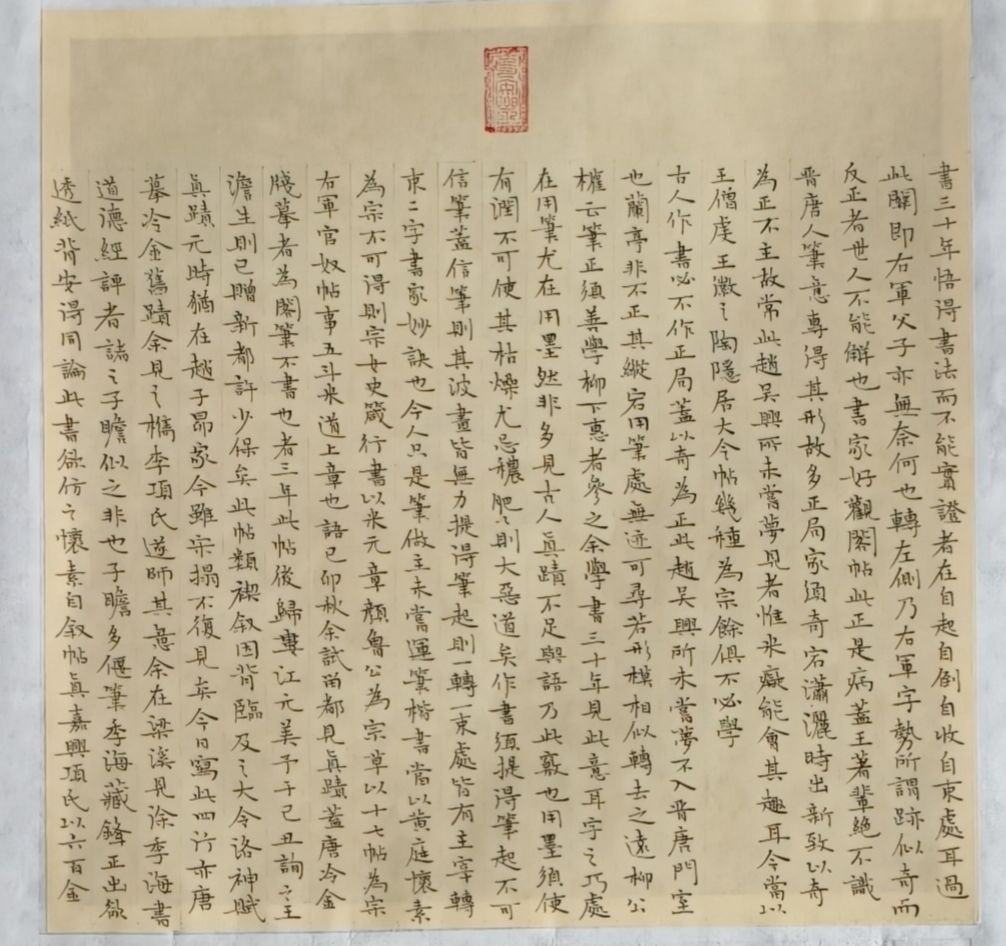 書三十年悟得書法而不能實證者在自起自倒自收自束處耳過
此關即右軍父子亦無奈何也轉左側乃右軍字勢所謂跡似奇而
反正者世人不能解也書家好觀閣帖此正是病蓋王著輩絕不識
晉唐人筆意專得其形故多正局家須奇宕瀟灑時出新致以奇
為正不主故常此趙吳興所未嘗夢見者惟米癡能會其趣耳今當以
王僧虔王徽之陶隱居大令帖幾種為宗餘俱不必學
古人作書必不作正局蓋以奇為正此趙吳興所未嘗夢不入晉唐門室
也蘭亭非不正其縱宕用筆處無迹可尋若形模相似轉去之遠柳公
權云筆正須善學柳下惠者參之余學書三十年見此意耳字之巧處
在用筆尤在用墨然非多見古人真蹟不足與語乃此竅也用墨須使
有潤不可使其枯燥尤忌穠肥肥則大惡道矣作書須提得筆起不可
信筆蓋信筆則其波畫皆無力提得筆起則一轉一束處皆有主宰轉
束二字書家妙訣也今人只是筆做主未嘗運筆楷書當以黃庭懷素
為宗不可得則宗女史箴行書以米元章顏魯公為宗草以十七帖為宗
右軍官奴帖事五斗米道上章也語已卯秋余試留都見真蹟蓋唐冷金
牋摹者為閣筆不書也者三年此帖後歸婁江元美予于己丑詢之王
澹生則已贈新都許少保矣此帖類禊叙因背臨及之大令洛神賦
真蹟元時猶在趙子昂家今雖宋搨不復見矣今日寫此四行亦唐
摹冷金舊蹟余見之檇李項氏遂師其意余在梁溪見徐季海書
道德經評者諸之子瞻似之非也子瞻多偃筆季海藏鋒正出欲
透紙背安得同論此書欲仿之懷素自叙帖真嘉興項氏以六百金